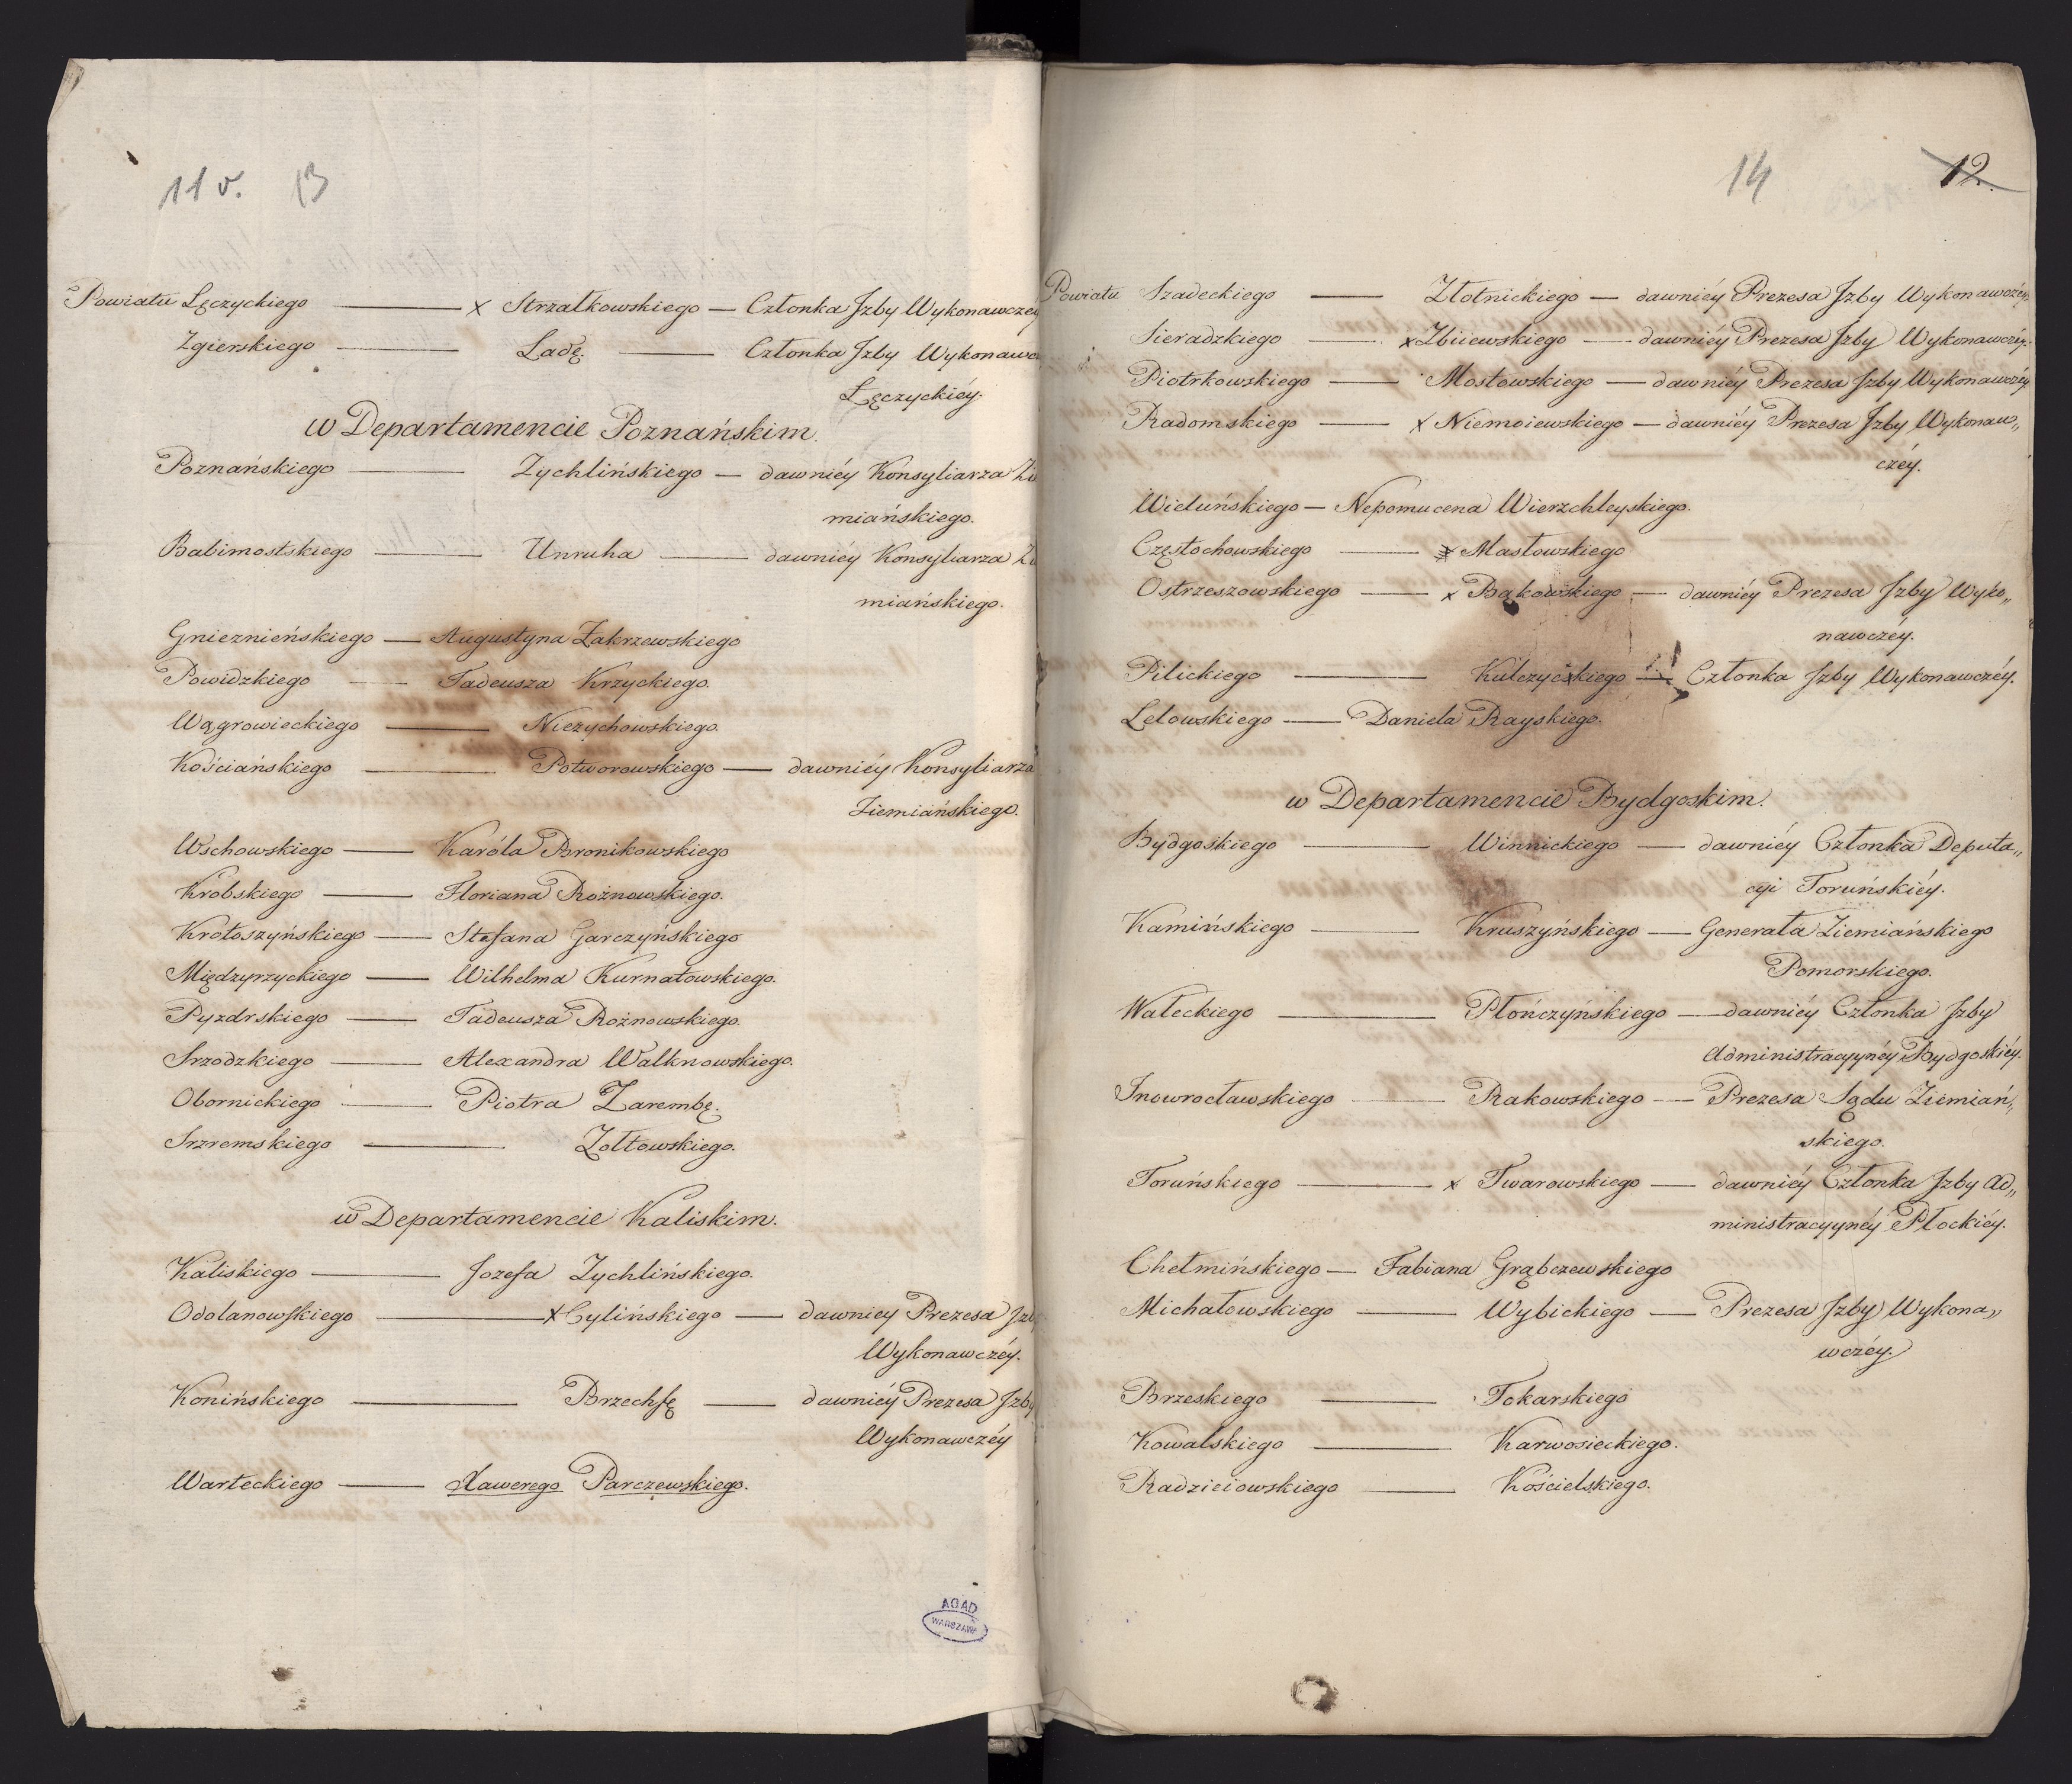 11 v. 13
Powiatu Łęczyckiego — x Strzałkowskiego — Członka Jzby Wykonawczéy
Zgierskiego — Ladę. — Członka Jzby Wykonawc
Łęczyckiéy.
w Departamencie Poznańskim.
Poznańskiego — Zychlińskiego — dawniéy Konsyliarza Zie
miańskiego.
Babimostskiego — Unruha — dawniéy Konsyliarza Zie
miańskiego.
Gnieznieńskiego — Augustyna Zakrzewskiego
Powidzkiego — Tadeusza Krzyckiego.
Wągrowieckiego — Niezychowskiego.
Kościańskiego — Potworowskiego — dawniéy Konsyliarza
Ziemiańskiego.
Wschowskiego — Karóla Bronikowskiego
Krobskiego — Floriana Rożnowskiego.
Krotoszyńskiego — Stefana Garczyńskiego
Międzyrzyckiego — Wilhelma Kurnatowskiego.
Pyzdrskiego — Tadeusza Rożnowskiego.
Srzodzkiego — Alexandra Walknowskiego.
Obornickiego — Piotra Zarembę.
Srzremskiego — Zołtowskiego.
w Departamencie Kaliskim.
Kaliskiego — Jozefa Zychlińskiego.
Odolanowskiego — x Cylińskiego — dawniey Prezesa Jzby
Wykonawczéy.
Konińskiego — Brzechfę — dawniéy Prezesa Jzby
Wykonawczéy
Warteckiego — Xawerego Parczewskiego.
AGAD
WARSZAWA
14 12.
Powiatu Szadeckiego — Złotnickiego — dawniéy Prezesa Jzby Wykonawczéy.
Sieradzkiego — x Zbiiewskiego — dawniéy Prezesa Jzby Wykonawczéy.
Piotrkowskiego — Mostowskiego — dawniéy Prezesa Jzby Wykonawczéy
Radomskiego — x Niemoiewskiego — dawniéy Prezesa Jzby Wykonaw„
czéy.
Wieluńskiego — Nepomucena Wierzchleyskiego.
Częstochowskiego — x Masłowskiego
Ostrzeszowskiego — x Bąkowskiego — dawniéy Prezesa Jzby Wyko„
nawczéy.
Pilickiego — Kulczyckiego — Członka Jzby Wykonawczéy.
Lelowskiego — Daniela Rayskiego.
w Departamencie Bydgoskim.
Bydgoskiego — Winnickiego — dawniéy Członka Deputa„
cyi Toruńskiéy.
Kamińskiego — Kruszyńskiego — Generała Ziemiańskiego
Pomorskiego.
Wałeckiego — Płończyńskiego — dawniéy Członka Jzby
Administracyynéy Bydgoskiéy.
Inowrocławskiego — Rakowskiego — Prezesa Sądu Ziemiań„
skiego.
Toruńskiego — x Twarowskiego — dawniéy Członka Jzby Ad„
ministracyynéy Płockiéy.
Chełmińskiego — Fabiana Grąbczewskiego
Michałowskiego — Wybickiego — Prezesa Jzby Wykona„
wczéy.
Brzeskiego — Tokarskiego
Kowalskiego — Karwosieckiego.
Radzieiowskiego — Kościelskiego.